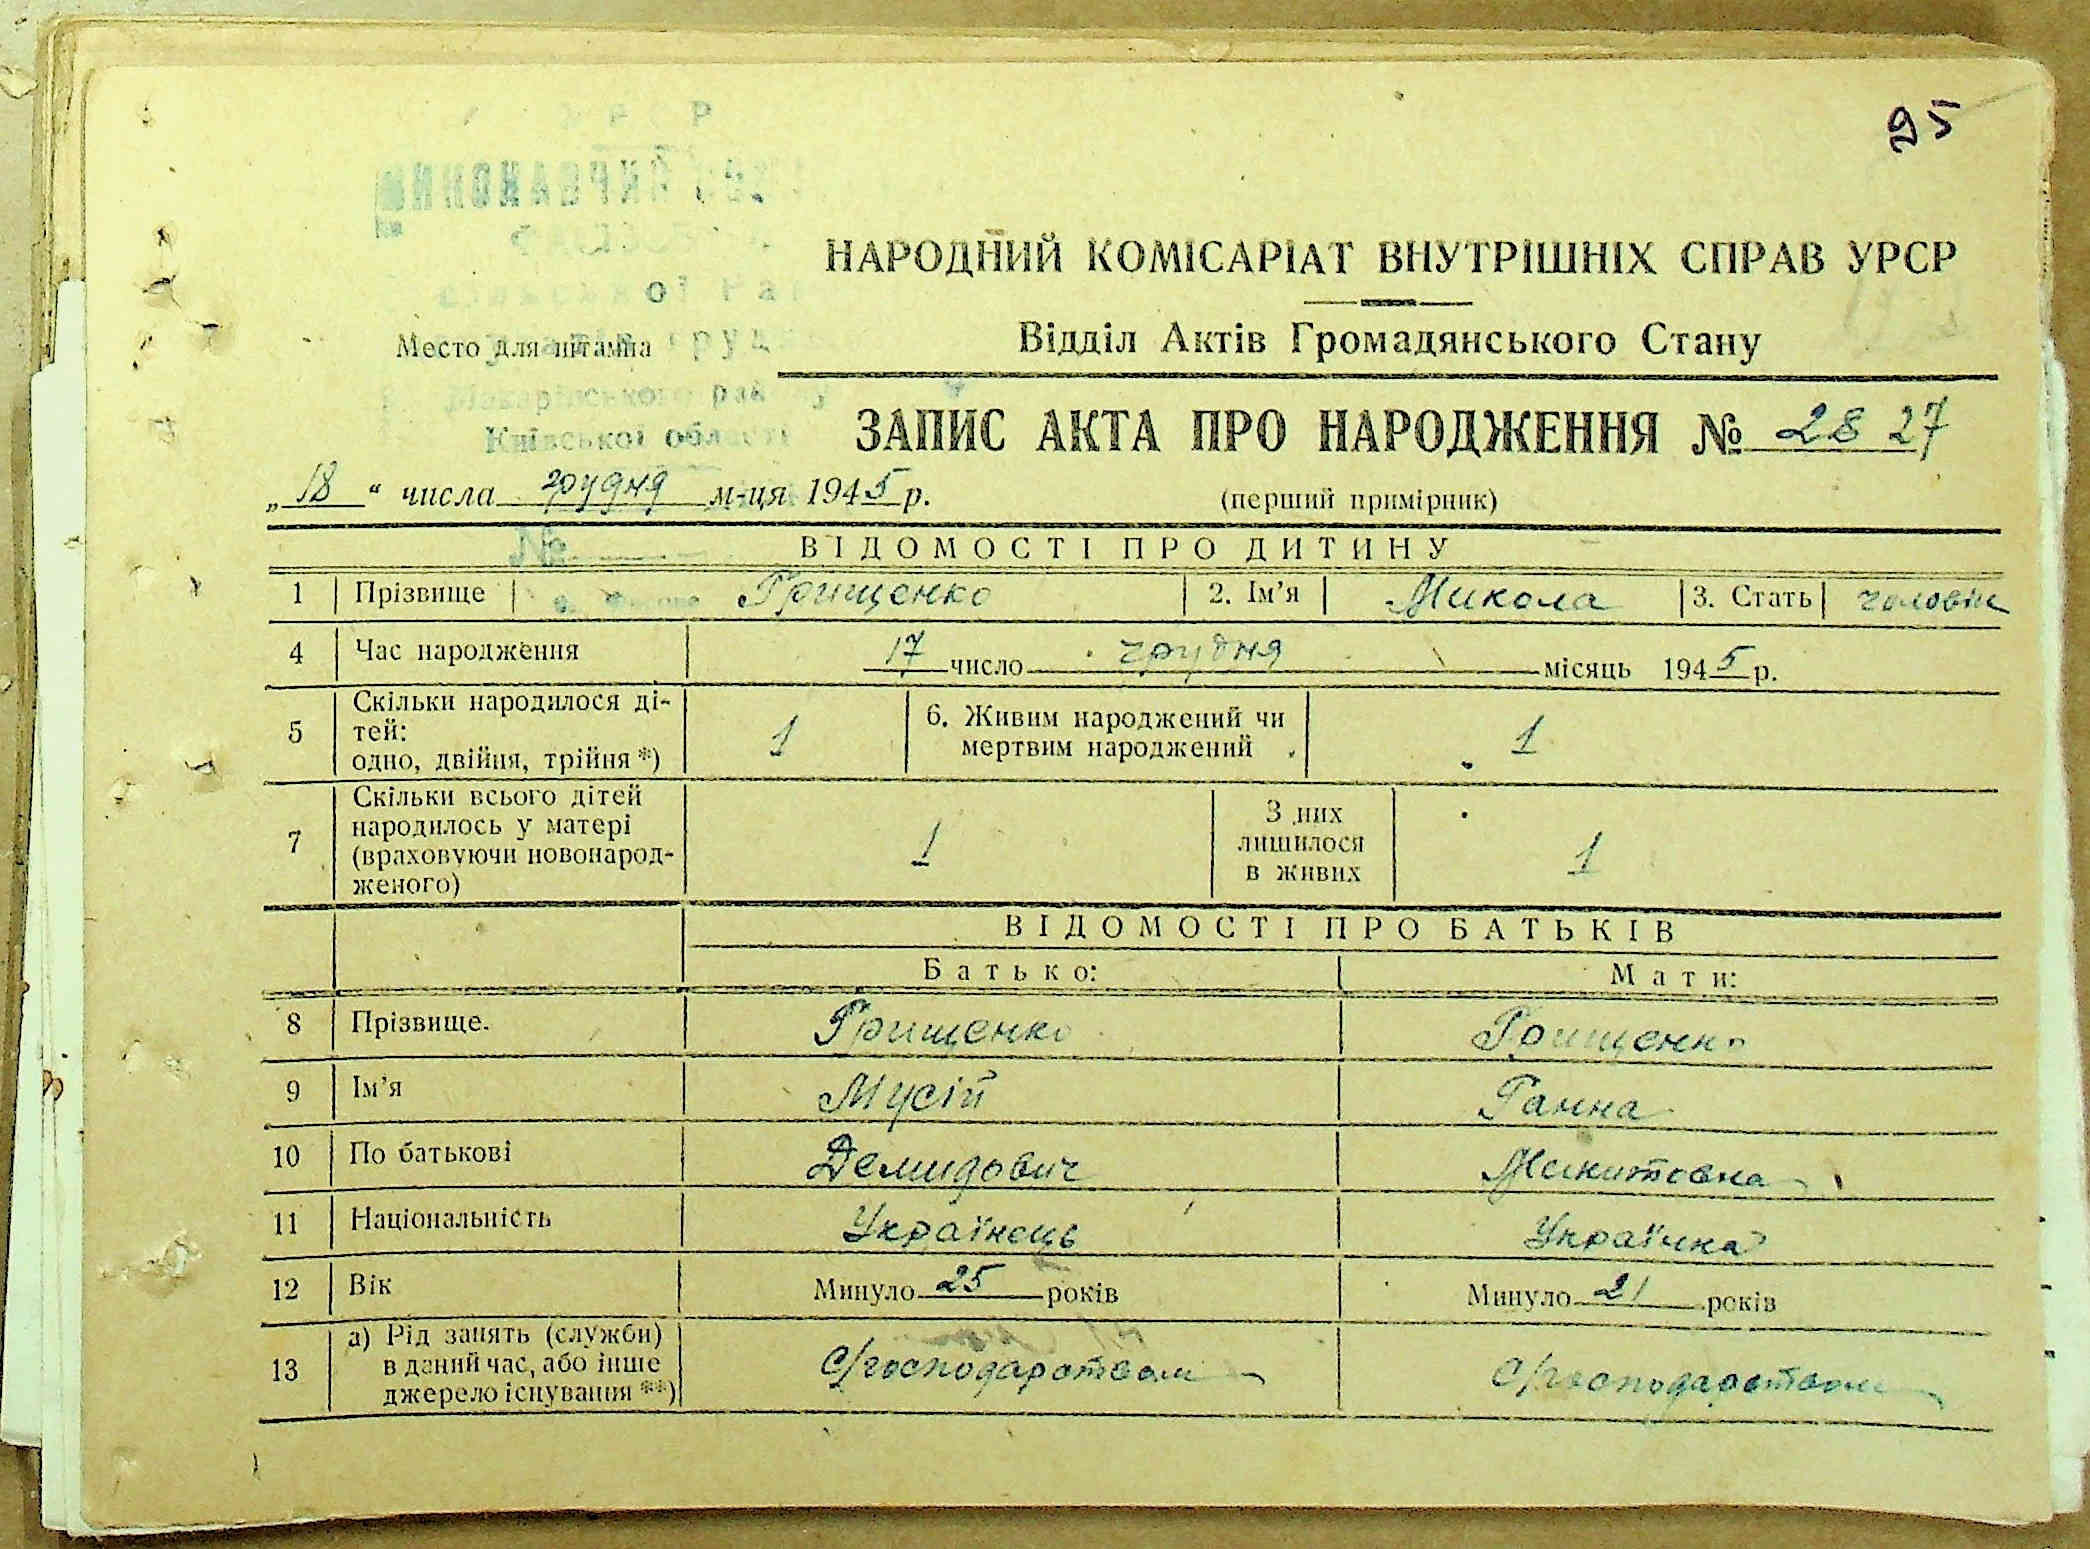 95
НАРОДНИЙ КОМІСАРІАТ ВНУТРІШНІХ СПРАВ УРСР
Место для штампа
Відділ Актів Громадянського Стану
Макарівського району
Київської області
ЗАПИС АКТА ПРО НАРОДЖЕННЯ № 28 27
„18“ числа грудня м-ця 1945 р. (перший примірник)
№
ВІДОМОСТІ ПРО ДИТИНУ
1 Прізвище Грищенко 2. Ім’я Микола 3. Стать чоловіч
4 Час народження 17 число грудня місяць 1945 р.
5 Скільки народилося ді-
тей:
одно, двійня, трійня *) 1
6. Живим народжений чи
мертвим народжений 1
7 Скільки всього дітей
народилось у матері
(враховуючи новонарод-
женого) 1
З них
лишилося
в живих 1
ВІДОМОСТІ ПРО БАТЬКІВ
Батько: Мати:
8 Прізвище. Грищенко Грищенко
9 Ім’я Мусій Ганна
10 По батькові Демидович Микитовна
11 Національність Українець Українка
12 Вік Минуло 25 років Минуло 21 років
13 а) Рід занять (служби)
в даний час, або інше
джерело існування **) С/господарством С/господарством